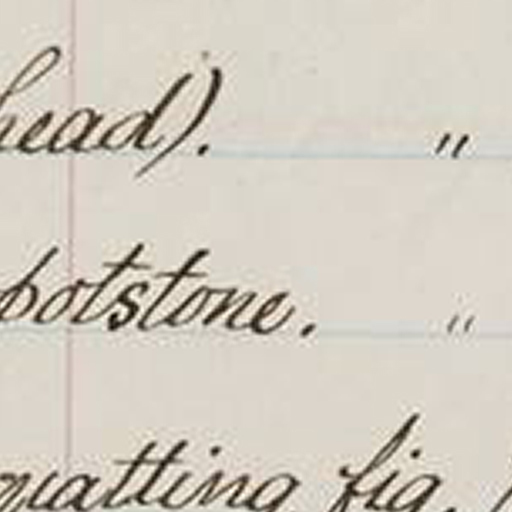 head). "
potstone. "
quatting fig.